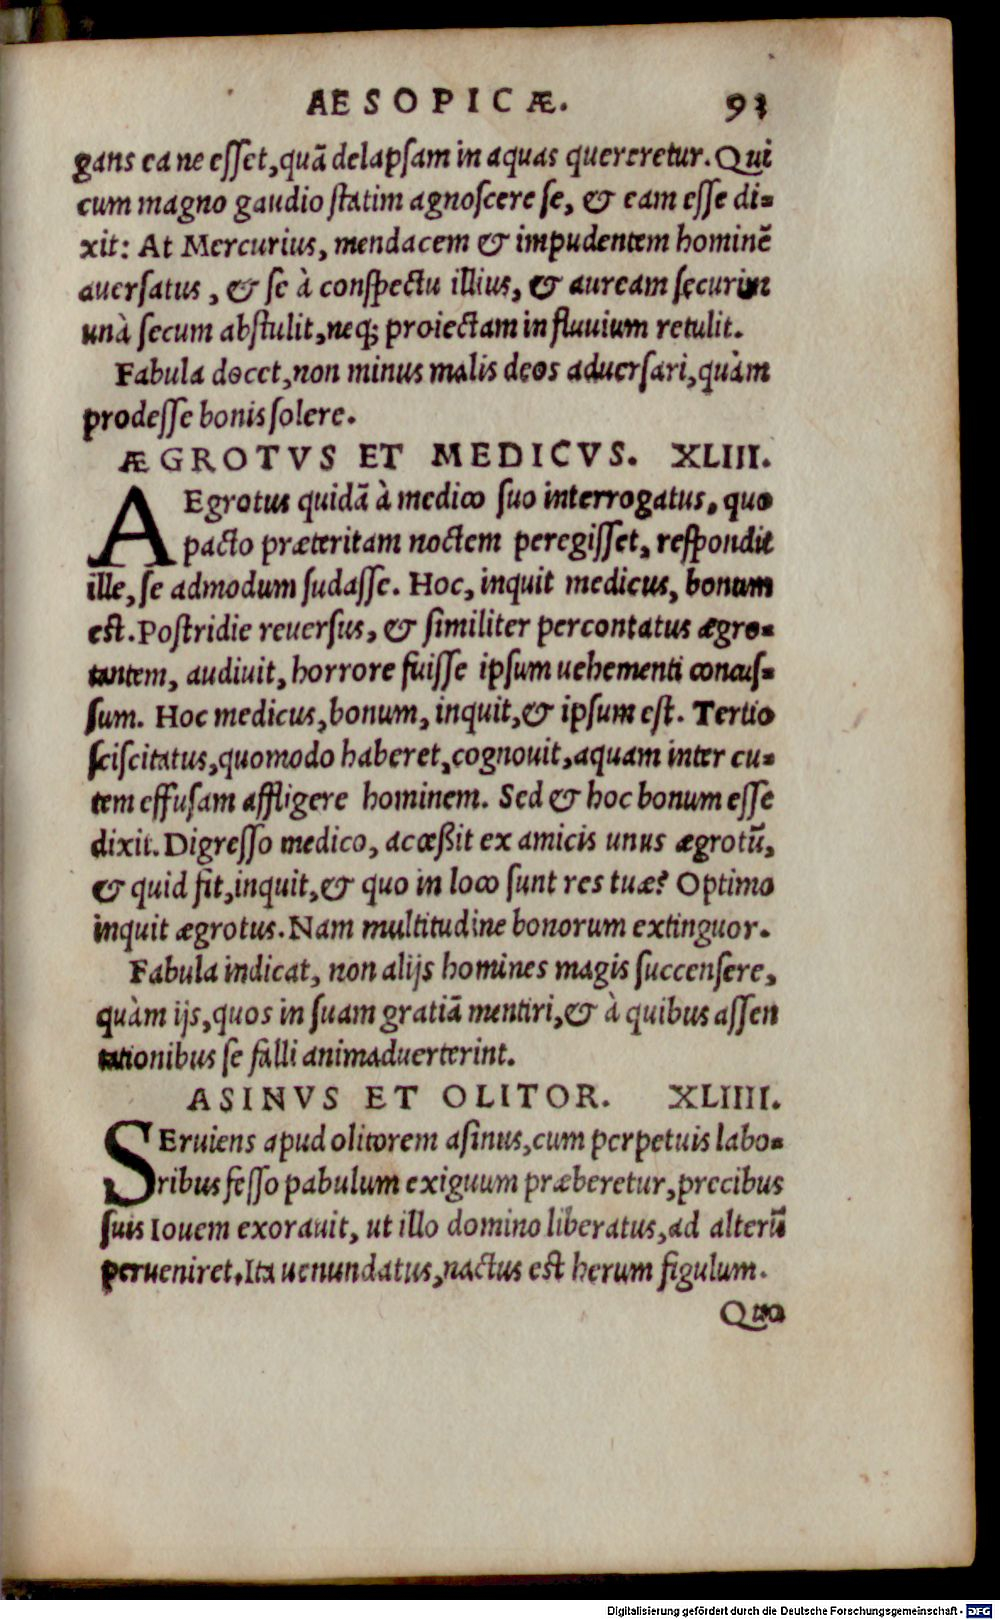 AESOPICÆ. 93
gans ea ne esset, quã delapsam in aquas quereretur. Qui
cum magno gaudio statim agnoscere se, & eam esse di-
xit: At Mercurius, mendacem & impudentem hominẽ
auersatus, & se à conspectu illius, & auream securim
unà secum abstulit, neq; proiectam in fluuium retulit.
Fabula docet, non minus malis deos aduersari, quàm
prodesse bonis solere.
ÆGROTVS ET MEDICVS. XLIII.
AEgrotus quidã à medico suo interrogatus, quo
pacto præteritam noctem peregisset, respondit
ille, se admodum sudasse. Hoc, inquit medicus, bonum
est. Postridie reuersus, & similiter percontatus ægro-
tantem, audiuit, horrore fuisse ipsum uehementi concus-
sum. Hoc medicus, bonum, inquit, & ipsum est. Tertio
sciscitatus, quomodo haberet, cognouit, aquam inter cu-
tem effusam affligere hominem. Sed & hoc bonum esse
dixit. Digresso medico, acceßit ex amicis unus ægrotũ,
& quid fit, inquit, & quo in loco sunt res tuæ? Optimo
inquit ægrotus. Nam multitudine bonorum extinguor.
Fabula indicat, non alijs homines magis succensere,
quàm ijs, quos in suam gratiã mentiri, & à quibus assen
tationibus se falli animaduerterint.
ASINVS ET OLITOR. XLIIII.
SEruiens apud olitorem asinus, cum perpetuis labo-
ribus fesso pabulum exiguum præberetur, precibus
suis Iouem exorauit, ut illo domino liberatus, ad alterũ
perueniret. Ita uenundatus, nactus est herum figulum.
Quo
Digitalisierung gefördert durch die Deutsche Forschungsgemeinschaft - DFG